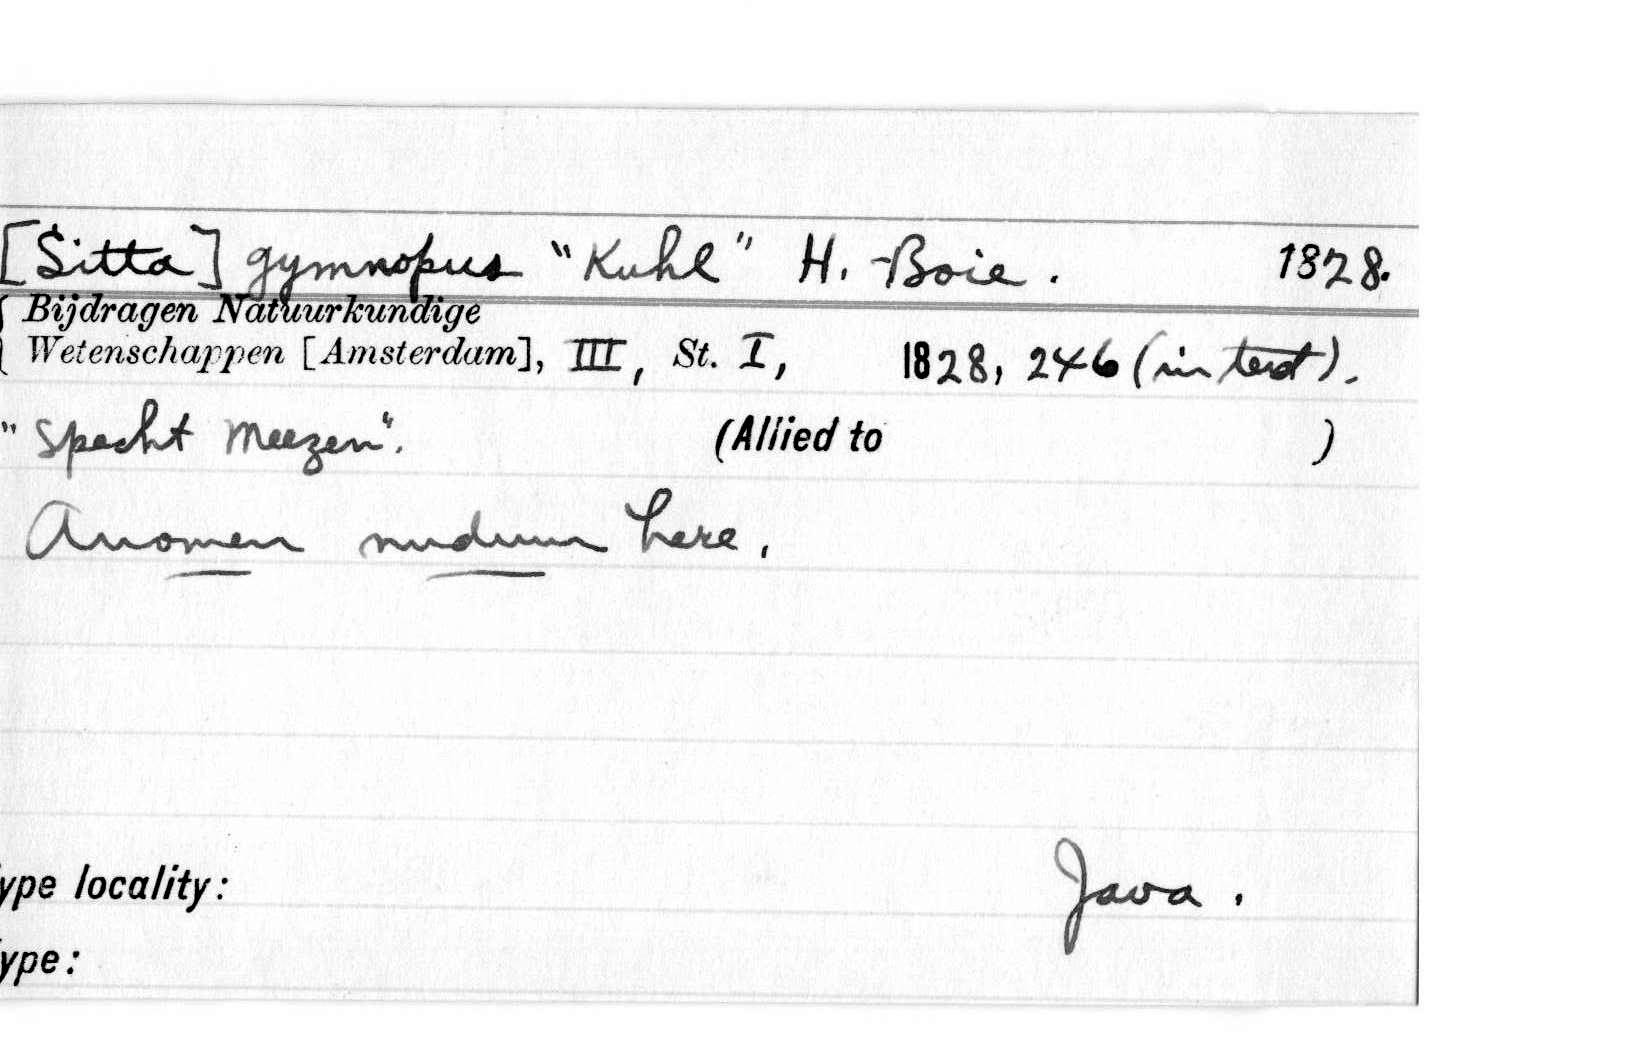 [Sitta] gymnopus "Kuhl" H. Boie. 1828.
Bijdragen Natuurkundige
Wetenschappen [Amsterdam], III, St. I, 1828, 246 (in text).
"Specht Meezen". (Allied to )
A nomen nudum here.
ype locality: Java.
ype: